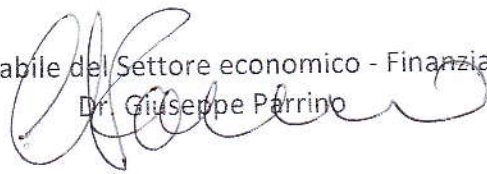 abile del Settore economico - Finanzia
Dr. Giuseppe Parrino